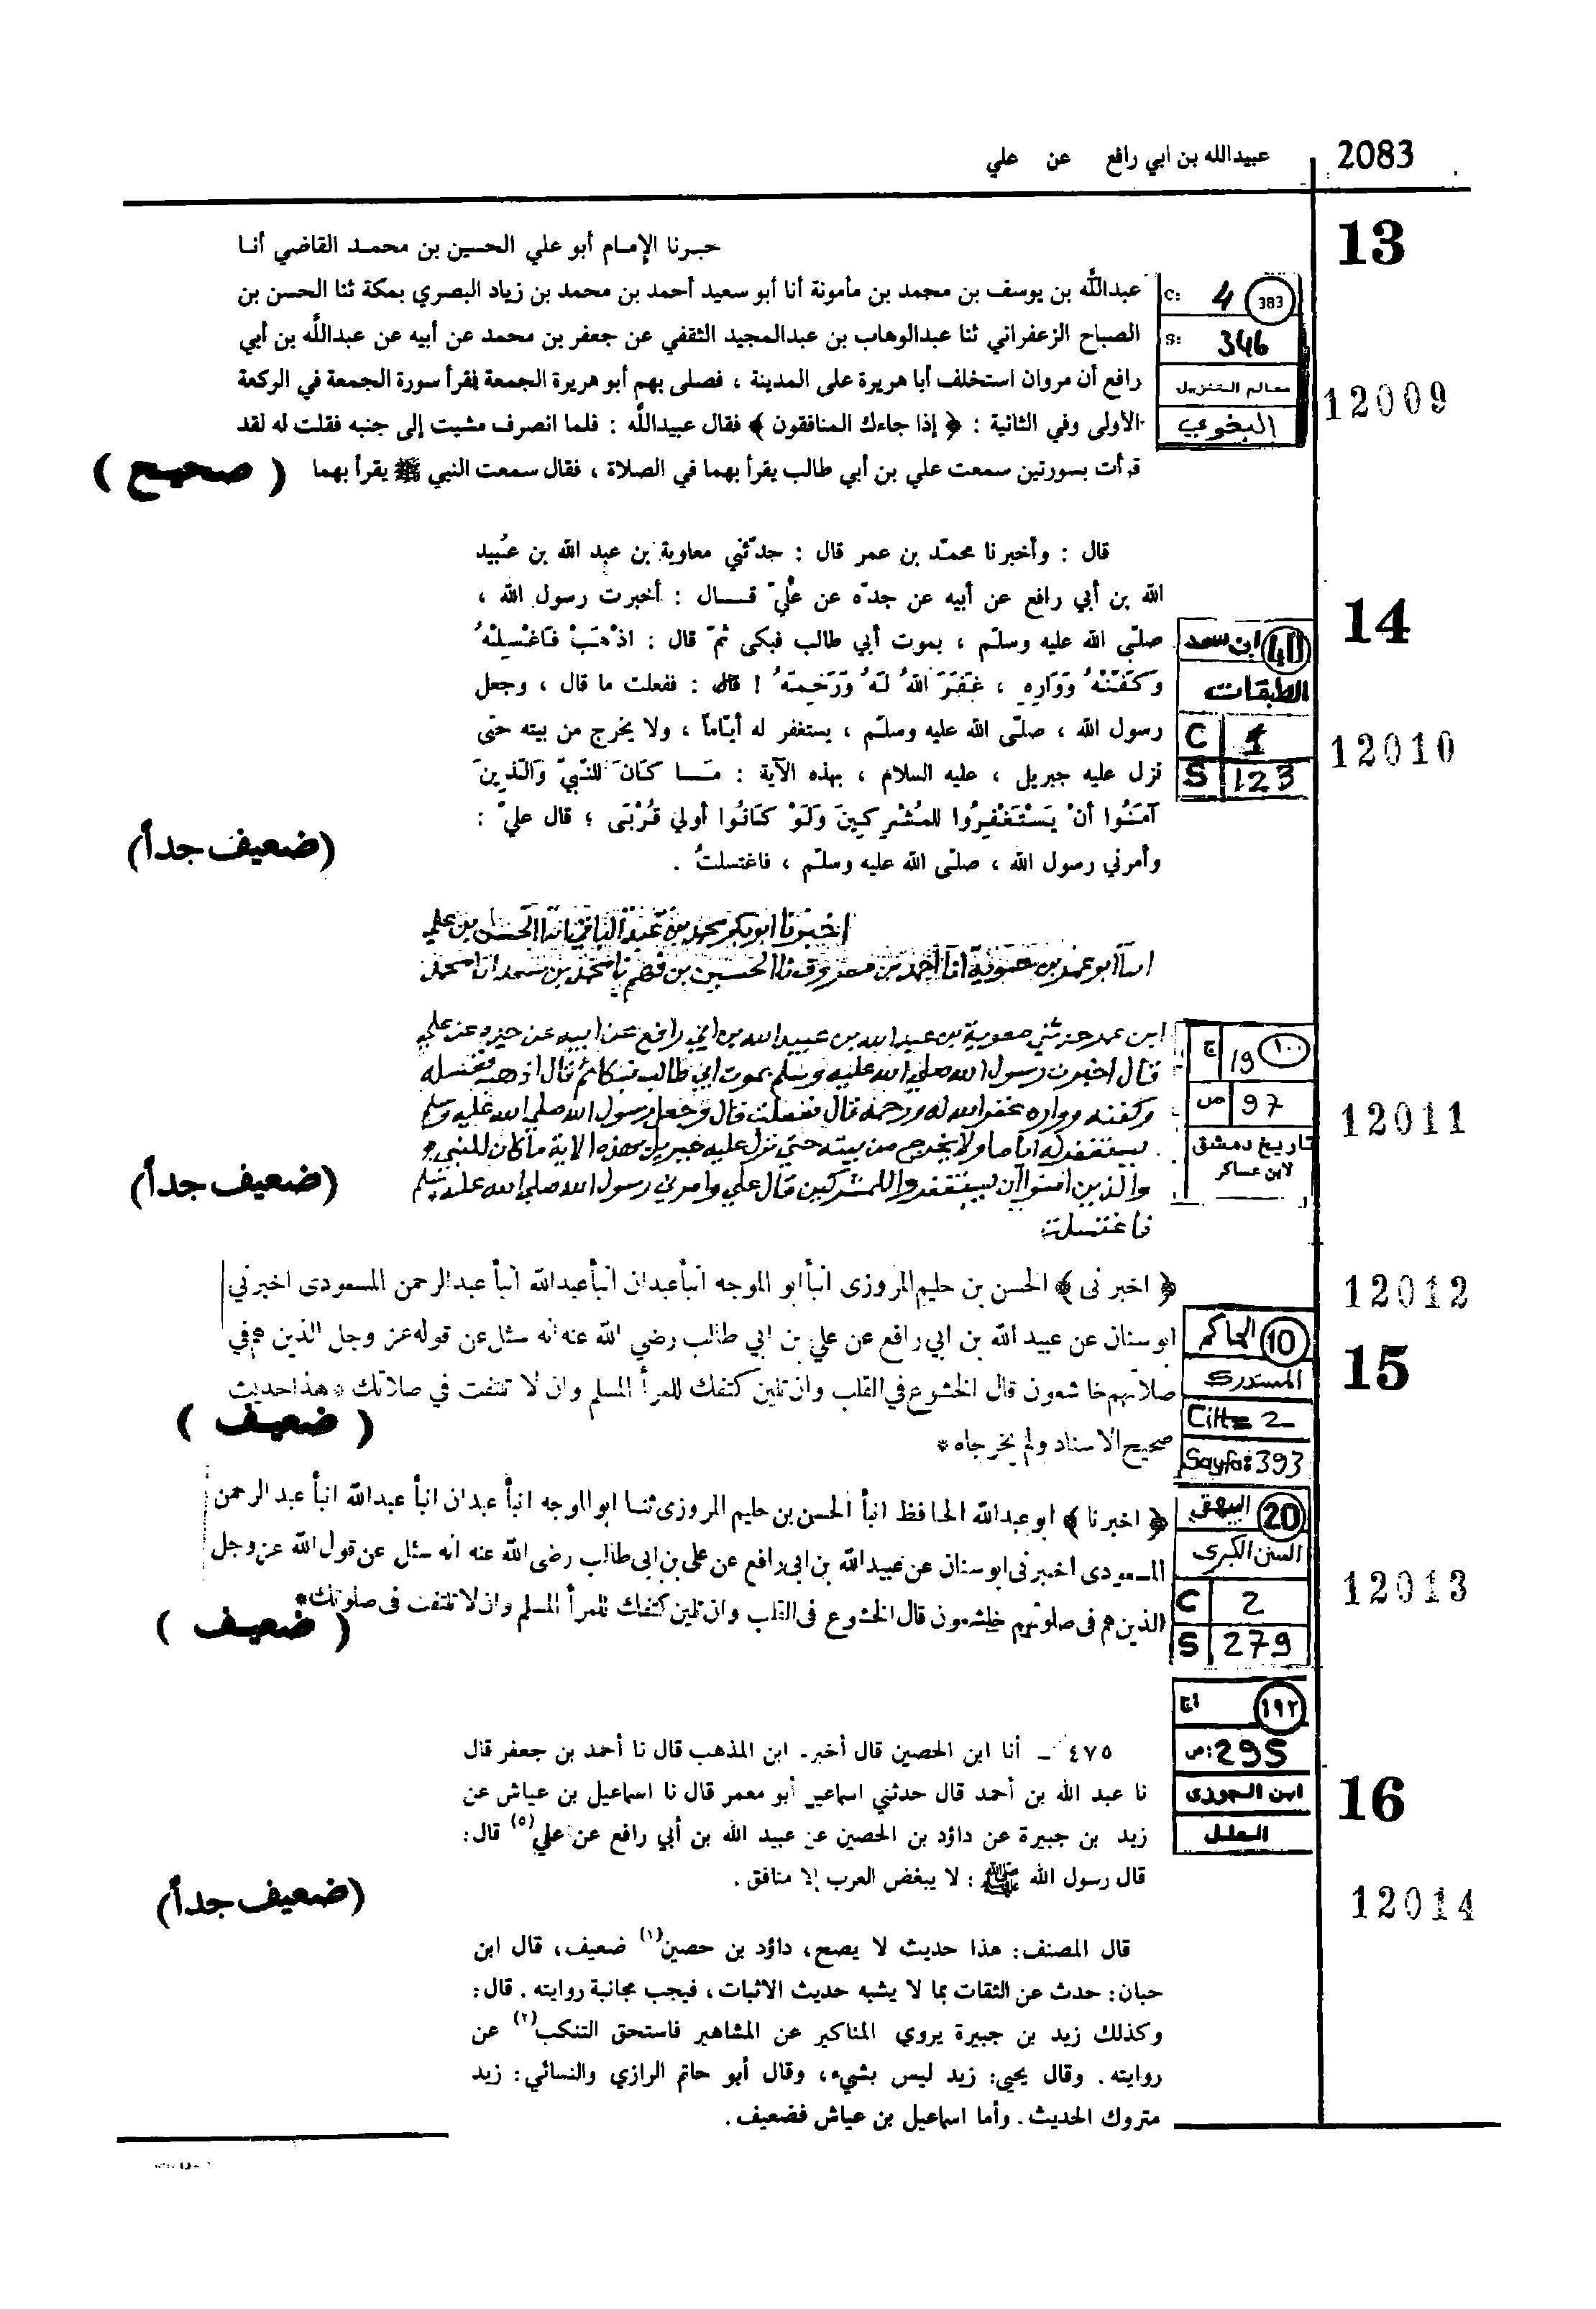 2083 عبيدالله بن ابي رافع عن علي
13
حبرنا الإمام أبو علي الحسين بن محمد القاضي أنا
عبدالله بن يوسف بن محمد بن مأمونة أنا أبو سعيد أحمد بن محمد بن زياد البصري بمكة ثنا الحسن بن
الصباح الزعفراني ثنا عبدالوهاب بن عبدالمجيد الثقفي عن جعفر بن محمد عن أبيه عن عبدالله بن أبي
رافع أن مروان استخلف أبا هريرة على المدينة ، فصلى بهم أبو هريرة الجمعة فقرأ سورة الجمعة في الركعة
الأولى وفي الثانية : ﴿ إذا جاءك المنافقون ﴾ فقال عبيدالله : فلما انصرف مشيت إلى جنبه فقلت له لقد
قرأت بسورتين سمعت علي بن أبي طالب يقرأ بهما في الصلاة ، فقال سمعت النبي ﷺ يقرأ بهما
( صحيح )
C: 4 383
S: 346
معالم التنزيل
البغوي
12009
14
قال : وأخبرنا محمّد بن عمر قال : حدّثني معاوية بن عبد الله بن عُبيد
الله بن أبي رافع عن أبيه عن جدّه عن عليّ قال : أخبرت رسول الله ،
صلّى الله عليه وسلّم ، بموت أبي طالب فبكى ثمّ قال : اذْهَبْ فَاغْسِلْهُ
وَكَفّنْهُ وَوَارِهِ ، غَفَرَ اللهُ لَهُ وَرَحِمَهُ ! قال : ففعلت ما قال ، وجعل
رسول الله ، صلّى الله عليه وسلّم ، يستغفر له أيّاماً ، ولا يخرج من بيته حتّى
نزل عليه جبريل ، عليه السلام ، بهذه الآية : مَا كَانَ للنّبيّ وَالّذِينَ
آمَنُوا أنْ يَسْتَغْفِرُوا للمُشْرِكِينَ وَلَوْ كَانُوا أُولي قُرْبَى ؛ قال عليّ :
وأمرني رسول الله ، صلّى الله عليه وسلّم ، فاغتسلتُ .
(ضعيف جداً)
ابن سعد 40
الطبقات
C 1
S 123
12010
اخبرنا ابو بكر محمد بن عبد الباقي انا الحسن بن علي
انبا ابو عمر بن حيوية انا احمد بن معروف نا الحسين بن فهم نا محمد بن سعد انا محمد
ابن عمر حدثني معوية بن عبد الله بن عبيد الله بن ابي رافع عن ابيه عن جده عن علي
قال اخبرت رسول الله صلي الله عليه وسلم بموت ابي طالب فبكا ثم قال اذهب فغسله
وكفنه وواره غفر الله له ورحمه قال ففعلت قال وجعل رسول الله صلي الله عليه وسلم
يستغفر له اياما ولا يخرج من بيته حتي نزل عليه جبريل بهذه الاية ما كان للنبي
والذين امنوا ان يستغفروا للمشركين قال علي وامرني رسول الله صلي الله عليه وسلم
فاغتسلت
(ضعيف جداً)
ج 19 ١٠٠
ص 97
تاريخ دمشق
لابن عساكر
12011
12012
15
﴿ اخبرنى ﴾ الحسن بن حليم المروزى انبأ ابو الموجه انبأ عبدان انبأ عبدالله انبأ عبدالرحمن المسعودى اخبرنى
ابو سنان عن عبيد الله بن ابي رافع عن علي بن ابي طالب رضي الله عنه انه سئل عن قوله عز وجل الذين هم في
صلاتهم خاشعون قال الخشوع في القلب وان تلين كتفك للمرأ المسلم وان لا تلتفت في صلاتك * هذا حديث
صحيح الاسناد ولم يخرجاه *
( ضعيف )
الحاكم 10
المستدرك
Cilt= 2
Sayfa: 393
﴿ اخبرنا ﴾ ابو عبدالله الحافظ انبأ الحسن بن حليم المروزى ثنا ابو الموجه انبأ عبدان انبأ عبدالله انبأ عبد الرحمن
المسعودى اخبرنى ابو سنان عن عبيد الله بن ابى رافع عن على بن ابى طالب رضى الله عنه انه سئل عن قول الله عز وجل
الذين هم فى صلوتهم خشعون قال الخشوع فى القلب وان تلين كتفك للمرأ المسلم وان لا تلتفت فى صلوتك*
( ضعيف )
البيهقى 20
السنن الكبرى
C 2
S 279
12013
ج١ ١٩٢
ص: 295
ابن الجوزى
العلل
16
٤٧٥ – أنا ابن الحصين قال أخبر. ابن المذهب قال نا أحمد بن جعفر قال
نا عبد الله بن أحمد قال حدثني اسماعيل أبو معمر قال نا اسماعيل بن عياش عن
زيد بن جبيرة عن داؤد بن الحصين عن عبيد الله بن أبي رافع عن علي(٥) قال:
قال رسول الله ﷺ : لا يبغض العرب إلا منافق .
(ضعيف جداً)
12014
قال المصنف: هذا حديث لا يصح، داؤد بن حصين(١) ضعيف، قال ابن
حبان: حدث عن الثقات بما لا يشبه حديث الاثبات، فيجب مجانبة روايته . قال:
وكذلك زيد بن جبيرة يروي المناكير عن المشاهير فاستحق التنكب(٢) عن
روايته . وقال يحيى: زيد ليس بشيء، وقال أبو حاتم الرازي والنسائي: زيد
متروك الحديث. وأما اسماعيل بن عياش فضعيف .